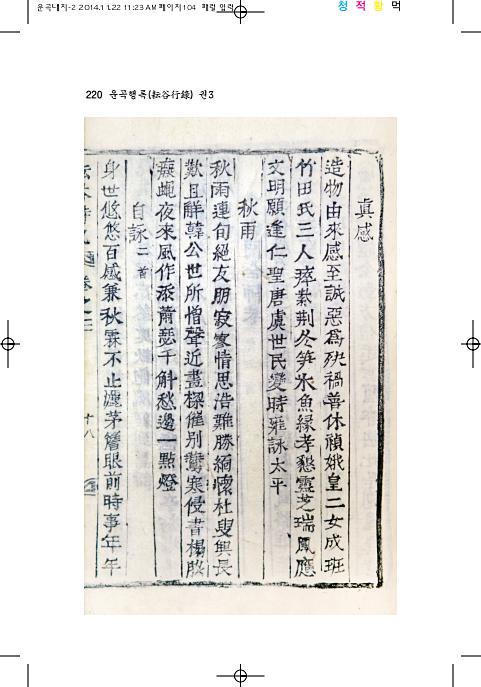 윤곡내지-2 2014.11.22 11:23 AM 페이지104
청 적 황 먹
220 운곡행록(耘谷行錄) 권3
眞感
造物由來感至誠惡爲殃禍善休禎娥皇二女成斑
竹田氏三人瘁紫荊冬笋氷魚緣孝懇靈芝瑞鳳應
文明願逢仁聖唐虞世民變時雍詠太平
秋雨
秋雨連旬絕友朋寂寥情思浩難勝緬懷杜叟興長
歎且解韓公世所憎聲近畫櫟催別鶯寒侵書榻
癡蠅夜來風作添蕭瑟千斛愁邊一點燈
自詠二首
身世悠悠百感兼秋霖不止灑茅簷眼前時事年年
卷之三
十八